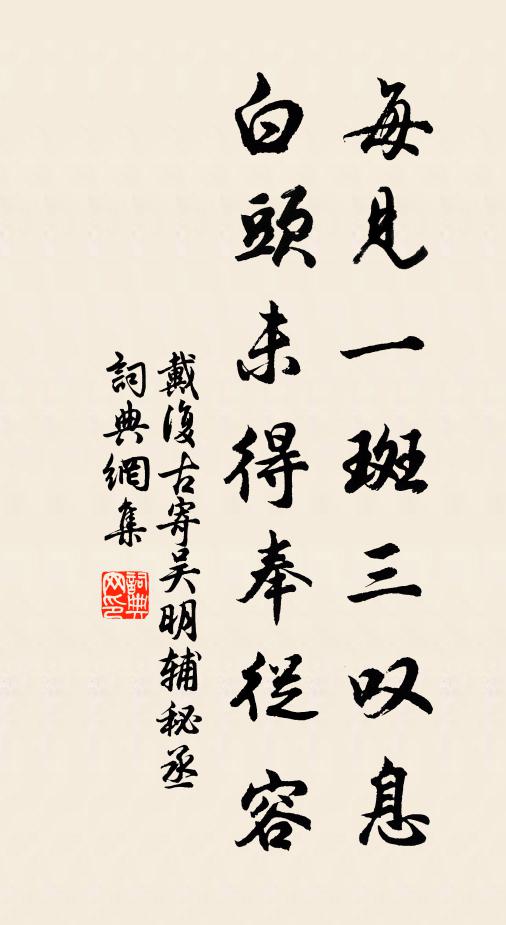 每見一斑三叹息
白頭未得奉從容
戴復古寄吴明辅秘丞
詞典網集
詞典网印